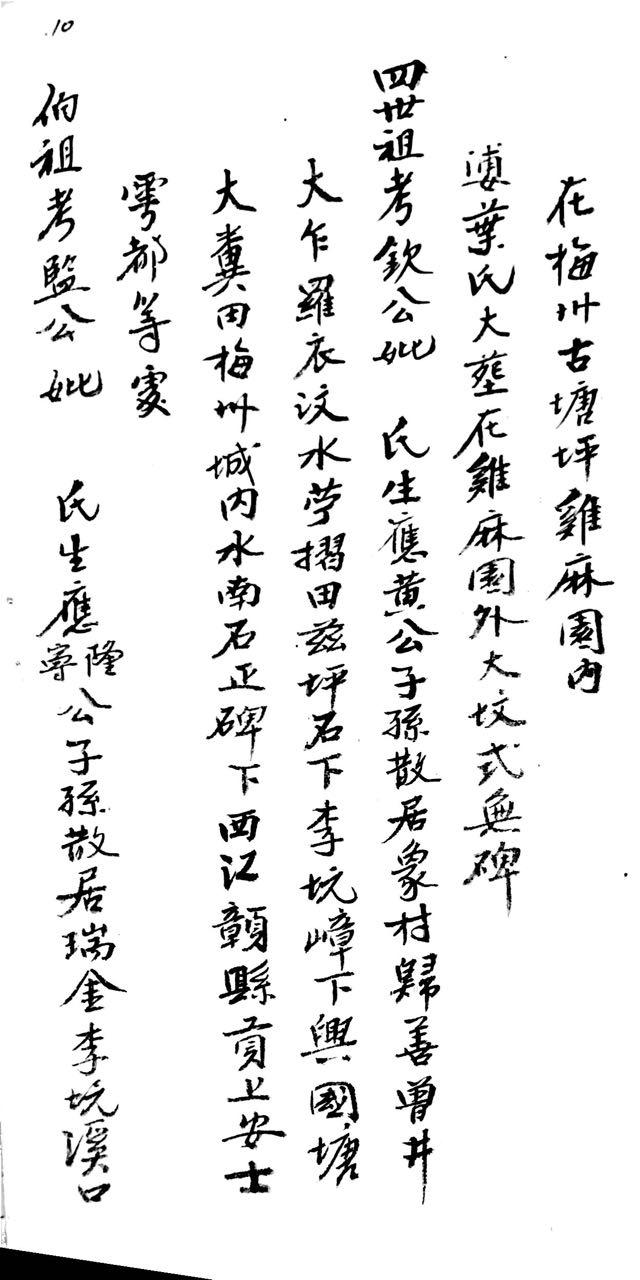 10
在梅州古塘坪雞麻園內
婆葉氏大塟在雞麻園外大坟式無碑
四世祖考欽公妣　氏生應黃公子孫散居象村歸善曾井
大乍羅衣汶水苧摺田茲坪石下李坑嶂下興國塘
大糞田梅州城內水南石正碑下西江贛縣貢上安士
雩都等處
伯祖考監公妣　氏生應隆寧公子孫散居瑞金李坑溪口